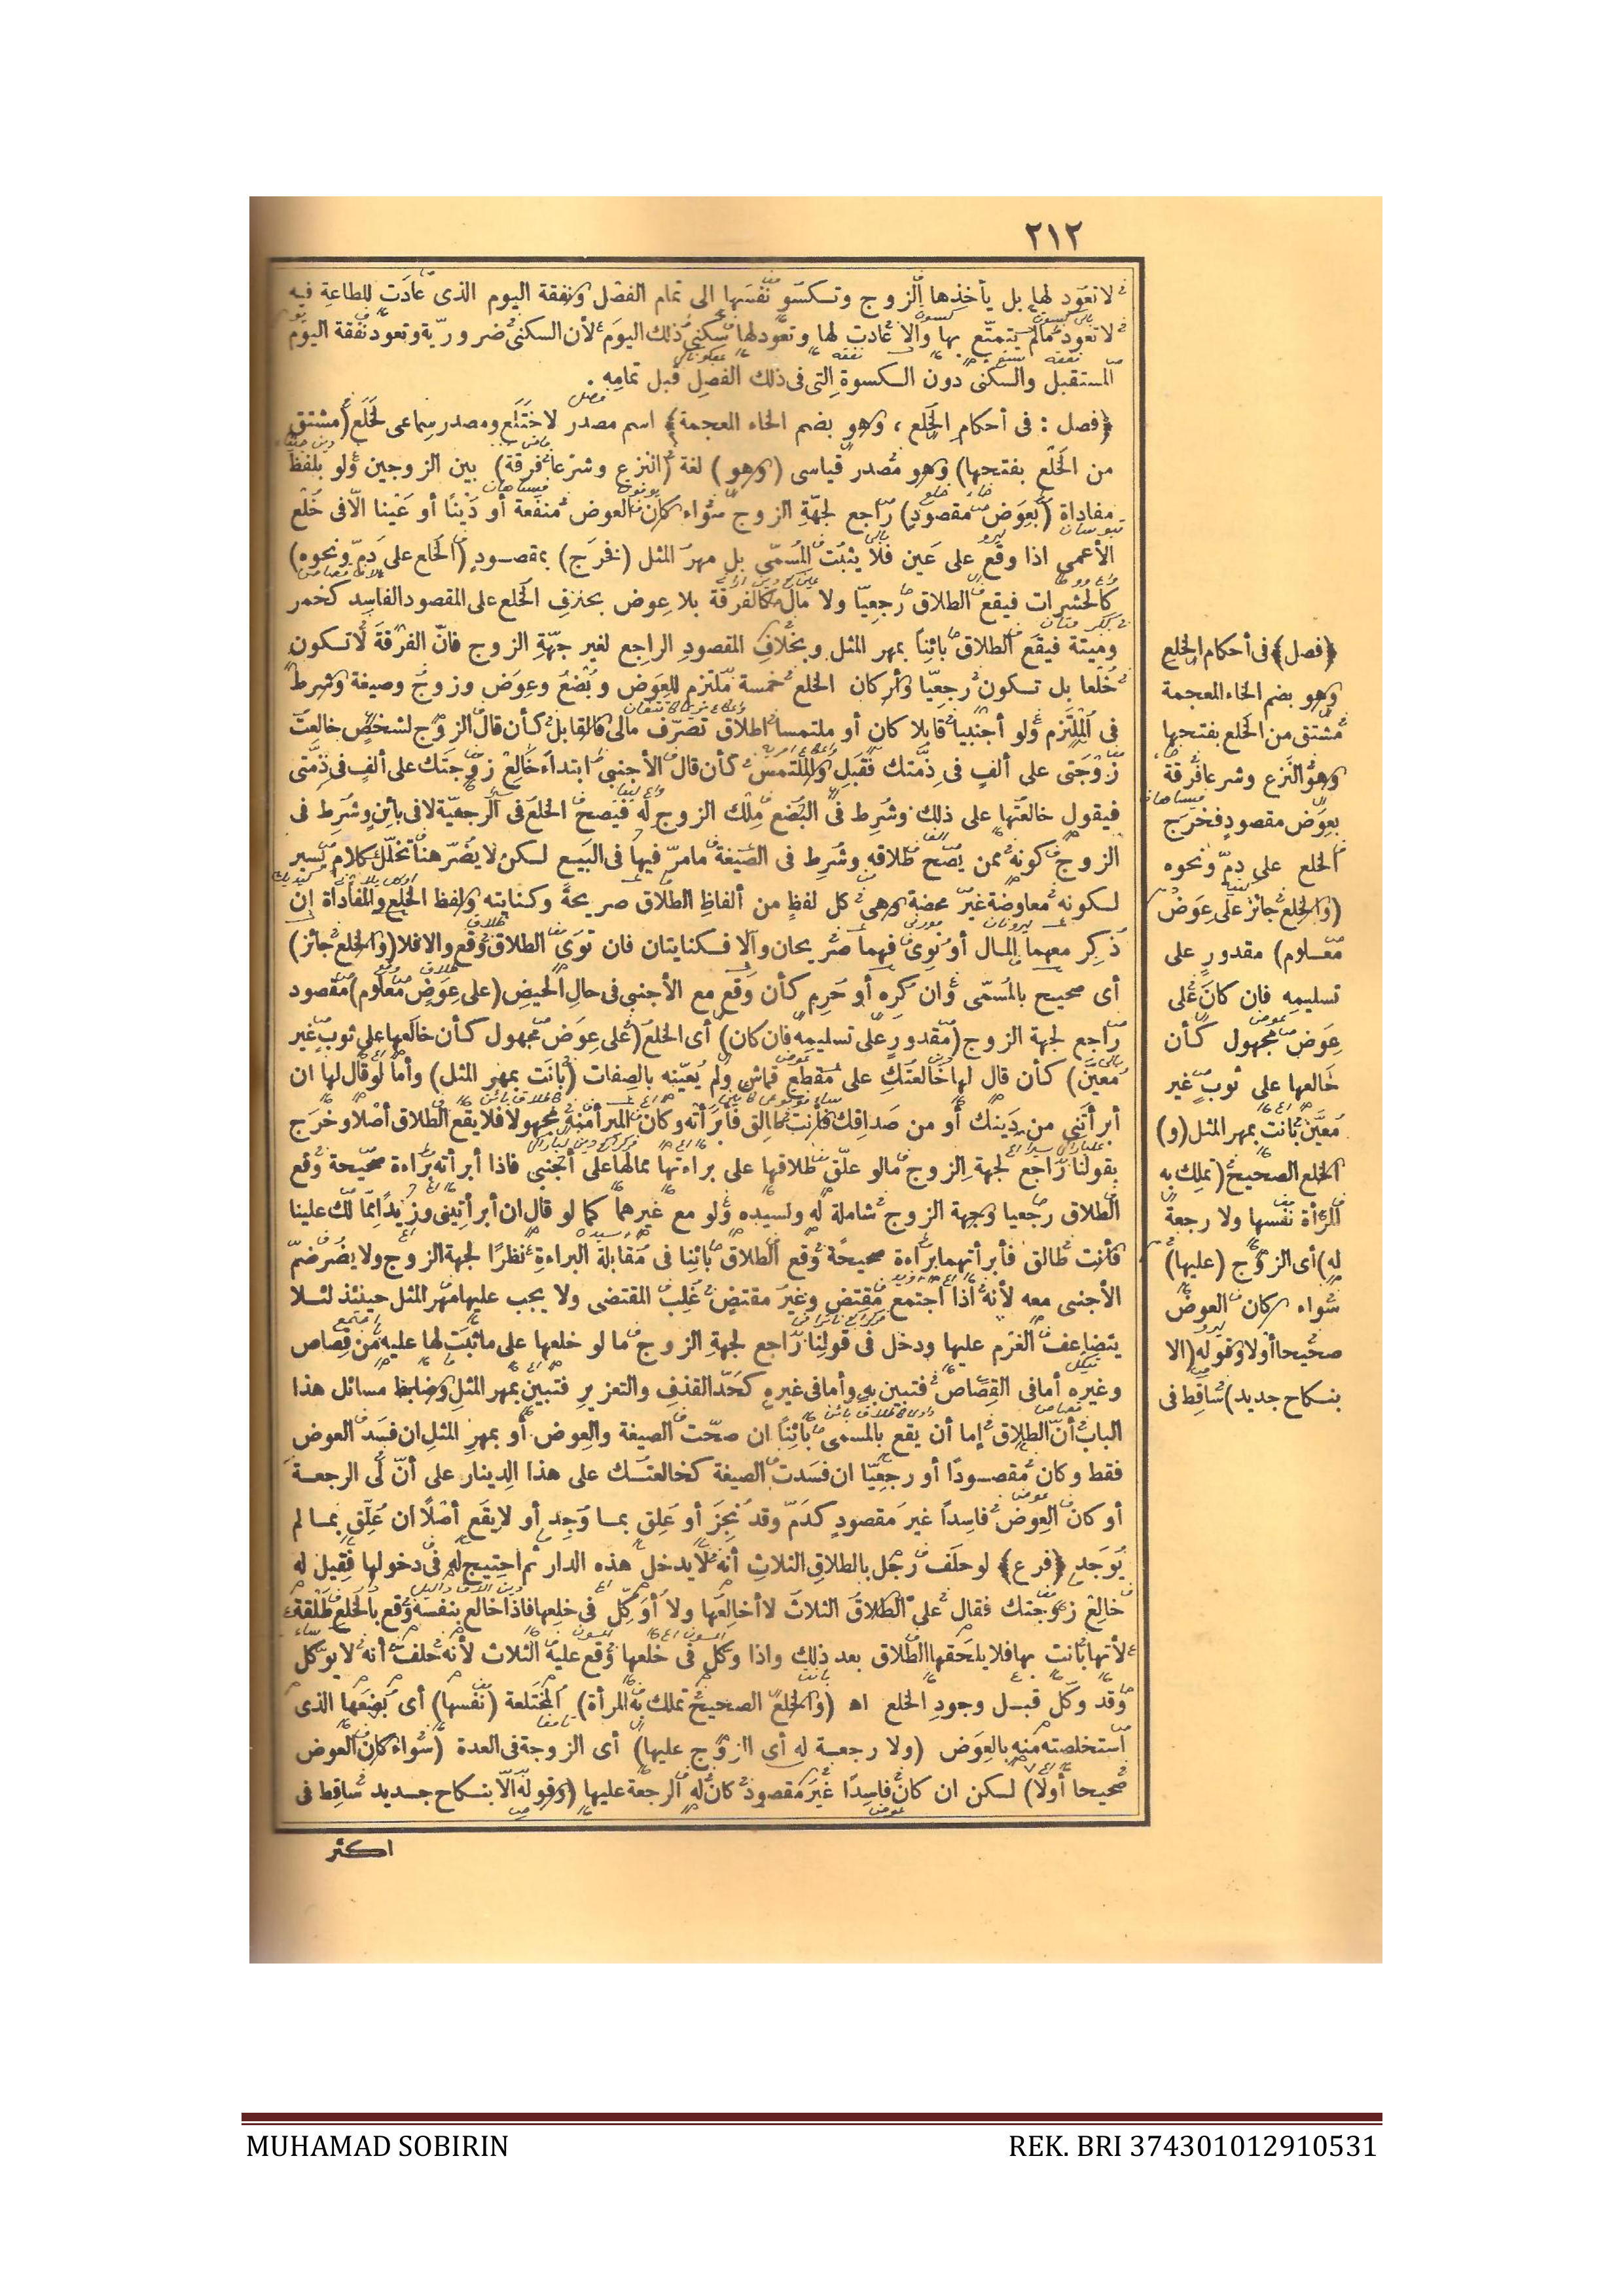 ٢١٢
لا تعود لها بل يأخذها الزوج وتكسو نفسها الى تمام الفصل ونفقة اليوم الذى عادت للطاعة فيه
لا تعود مالم يتمتع بها والا عادت لها وتعود لها سكنى ذلك اليوم لأن السكنى ضرورية وتعود نفقة اليوم
المستقبل والسكنى دون الكسوة التى فى ذلك الفصل قبل تمامه .
﴿فصل : فى أحكام الخلع ، وهو بضم الخاء المعجمة﴾ اسم مصدر لاختلع ومصدر سماعى لخلع (مشتق
من الخلع بفتحها) وهو مصدر قياسى (وهو) لغة (النزع وشرعا فرقة) بين الزوجين ولو بلفظ
مفاداة (بعوض مقصود) راجع لجهة الزوج سواء كان العوض منفعة أو دينا أو عينا الا فى خلع
الأعمى اذا وقع على عين فلا يثبت المسمى بل مهر المثل (فخرج) بمقصود (الخلع على دم ونحوه)
كالحشرات فيقع الطلاق رجعيا ولا مال كالفرقة بلا عوض بخلاف الخلع على المقصود الفاسد كخمر
وميتة فيقع الطلاق بائنا بمهر المثل وبخلاف المقصود الراجع لغير جهة الزوج فان الفرقة لا تكون
خلعا بل تكون رجعيا وأركان الخلع خمسة ملتزم للعوض وبضع وعوض وزوج وصيغة وشرط
فى الملتزم ولو أجنبيا قابلا كان أو ملتمسا اطلاق تصرف مالى فالقابل كأن قال الزوج لشخص خالعت
زوجتى على ألف فى ذمتك فقبل والملتمس كأن قال الأجنبى ابتداء خالع زوجتك على ألف فى ذمتى
فيقول خالعتها على ذلك وشرط فى البضع ملك الزوج له فيصح الخلع فى الرجعية لا فى بائن وشرط فى
الزوج كونه ممن يصح طلاقه وشرط فى الصيغة مامر فيها فى البيع لكن لا يضر هنا تخلل كلام يسير
لكونه معاوضة غير محضة وهى كل لفظ من ألفاظ الطلاق صريحة وكنايته ولفظ الخلع والمفاداة ان
ذكر معهما المال أو نوى فهما صريحان والا فكنايتان فان نوى الطلاق وقع والا فلا (والخلع جائز)
أى صحيح بالمسمى وان كره أو حرم كأن وقع مع الأجنبى فى حال الحيض (على عوض معلوم) مقصود
راجع لجهة الزوج (مقدور على تسليمه فان كان) أى الخلع (على عوض مجهول كأن خالعها على ثوب غير
معين) كأن قال لها خالعتك على مقطع قماش ولم يعينه بالصفات (بانت بمهر المثل) وأما لو قال لها ان
أبرأتنى من دينك أو من صداقك فأنت طالق فأبرأته وكان المبرأ منه مجهولا فلا يقع الطلاق أصلا وخرج
بقولنا راجع لجهة الزوج مالو علق طلاقها على براءتها ممالها على أجنبى فاذا أبرأته براءة صحيحة وقع
الطلاق رجعيا وجهة الزوج شاملة له ولسيده ولو مع غيرهما كما لو قال ان أبرأتينى وزيدا مما لك علينا
فأنت طالق فأبرأتهما براءة صحيحة وقع الطلاق بائنا فى مقابلة البراءة نظرا لجهة الزوج ولا يضر ضم
الأجنبى معه لأنه اذا اجتمع مقتض وغير مقتض غلب المقتضى ولا يجب عليها مهر المثل حينئذ لئلا
يتضاعف الغرم عليها ودخل فى قولنا راجع لجهة الزوج ما لو خلعها على ما ثبت لها عليه من قصاص
وغيره أما فى القصاص فتبين به وأما فى غيره كحد القذف والتعزير فتبين بمهر المثل وضابط مسائل هذا
الباب أن الطلاق إما أن يقع بالمسمى بائنا ان صحت الصيغة والعوض أو بمهر المثل ان فسد العوض
فقط وكان مقصودا أو رجعيا ان فسدت الصيغة كخالعتك على هذا الدينار على أن لى الرجعة
أو كان العوض فاسدا غير مقصود كدم وقد نجز أو علق بما وجد أو لا يقع أصلا ان علق بما لم
يوجد ﴿فرع﴾ لو حلف رجل بالطلاق الثلاث أنه لا يدخل هذه الدار ثم احتيج له فى دخولها فقيل له
خالع زوجتك فقال على الطلاق الثلاث لا أخالعها ولا أوكل فى خلعها فاذا خالع بنفسه وقع بالخلع طلقة
لأنها بانت بها فلا يلحقها الطلاق بعد ذلك واذا وكل فى خلعها وقع عليه الثلاث لأنه حلف أنه لا يوكل
وقد وكل قبل وجود الخلع اه (والخلع الصحيح تملك به المرأة) المختلعة (نفسها) أى بضعها الذى
استخلصته منه بالعوض (ولا رجعة له أى الزوج عليها) أى الزوجة فى العدة (سواء كان العوض
صحيحا أولا) لكن ان كان فاسدا غير مقصود كان له الرجعة عليها (وقوله الا بنكاح جديد ساقط فى
اكثر
﴿فصل﴾ فى أحكام الخلع
وهو بضم الخاء المعجمة
مشتق من الخلع بفتحها
وهو النزع وشرعا فرقة
بعوض مقصود فخرج
الخلع على دم ونحوه
(والخلع جائز على عوض
معلوم) مقدور على
تسليمه فان كان على
عوض مجهول كأن
خالعها على ثوب غير
معين بانت بمهر المثل (و)
الخلع الصحيح (تملك به
المرأة نفسها ولا رجعة
له) أى الزوج (عليها)
سواء كان العوض
صحيحا أولا وقوله (الا
بنكاح جديد) ساقط فى
MUHAMAD SOBIRIN
REK. BRI 374301012910531